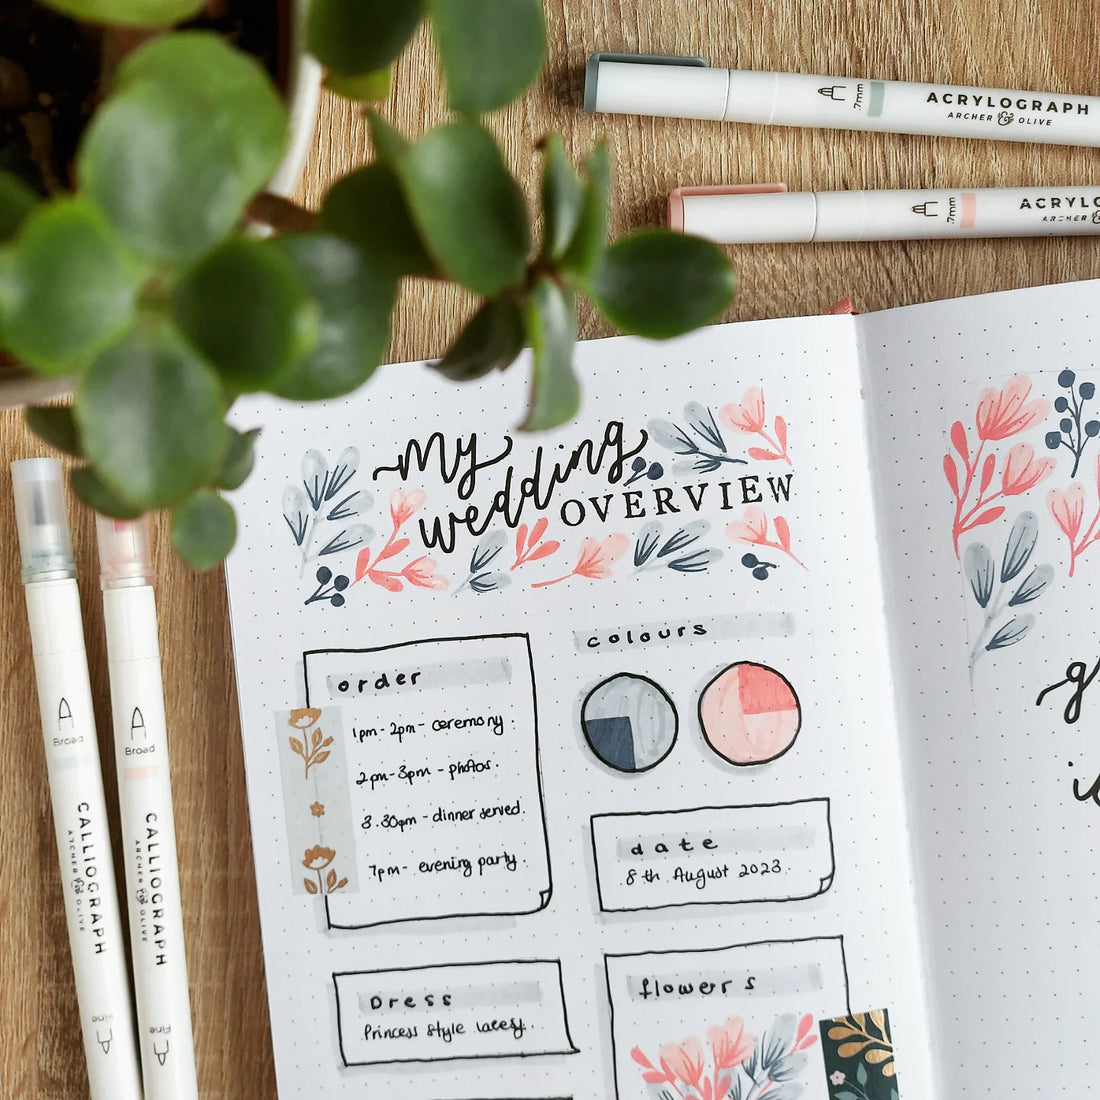 .7mm
ACRYLOGRAPH
ARCHER & OLIVE
.7mm
ACRYLO
ARCHER &
My
wedding
OVERVIEW
order
1pm-2pm - ceremony.
2pm-3pm - photos.
3.30pm - dinner served.
7pm - evening party.
colours
date
8th August 2023.
Dress
Princess style lacey.
flowers
A
Broad
CALLIOGRAPH
ARCHER & OLIVE
Fine
A
Broad
CALLIOGRAPH
ARCHER & OLIVE
Fine